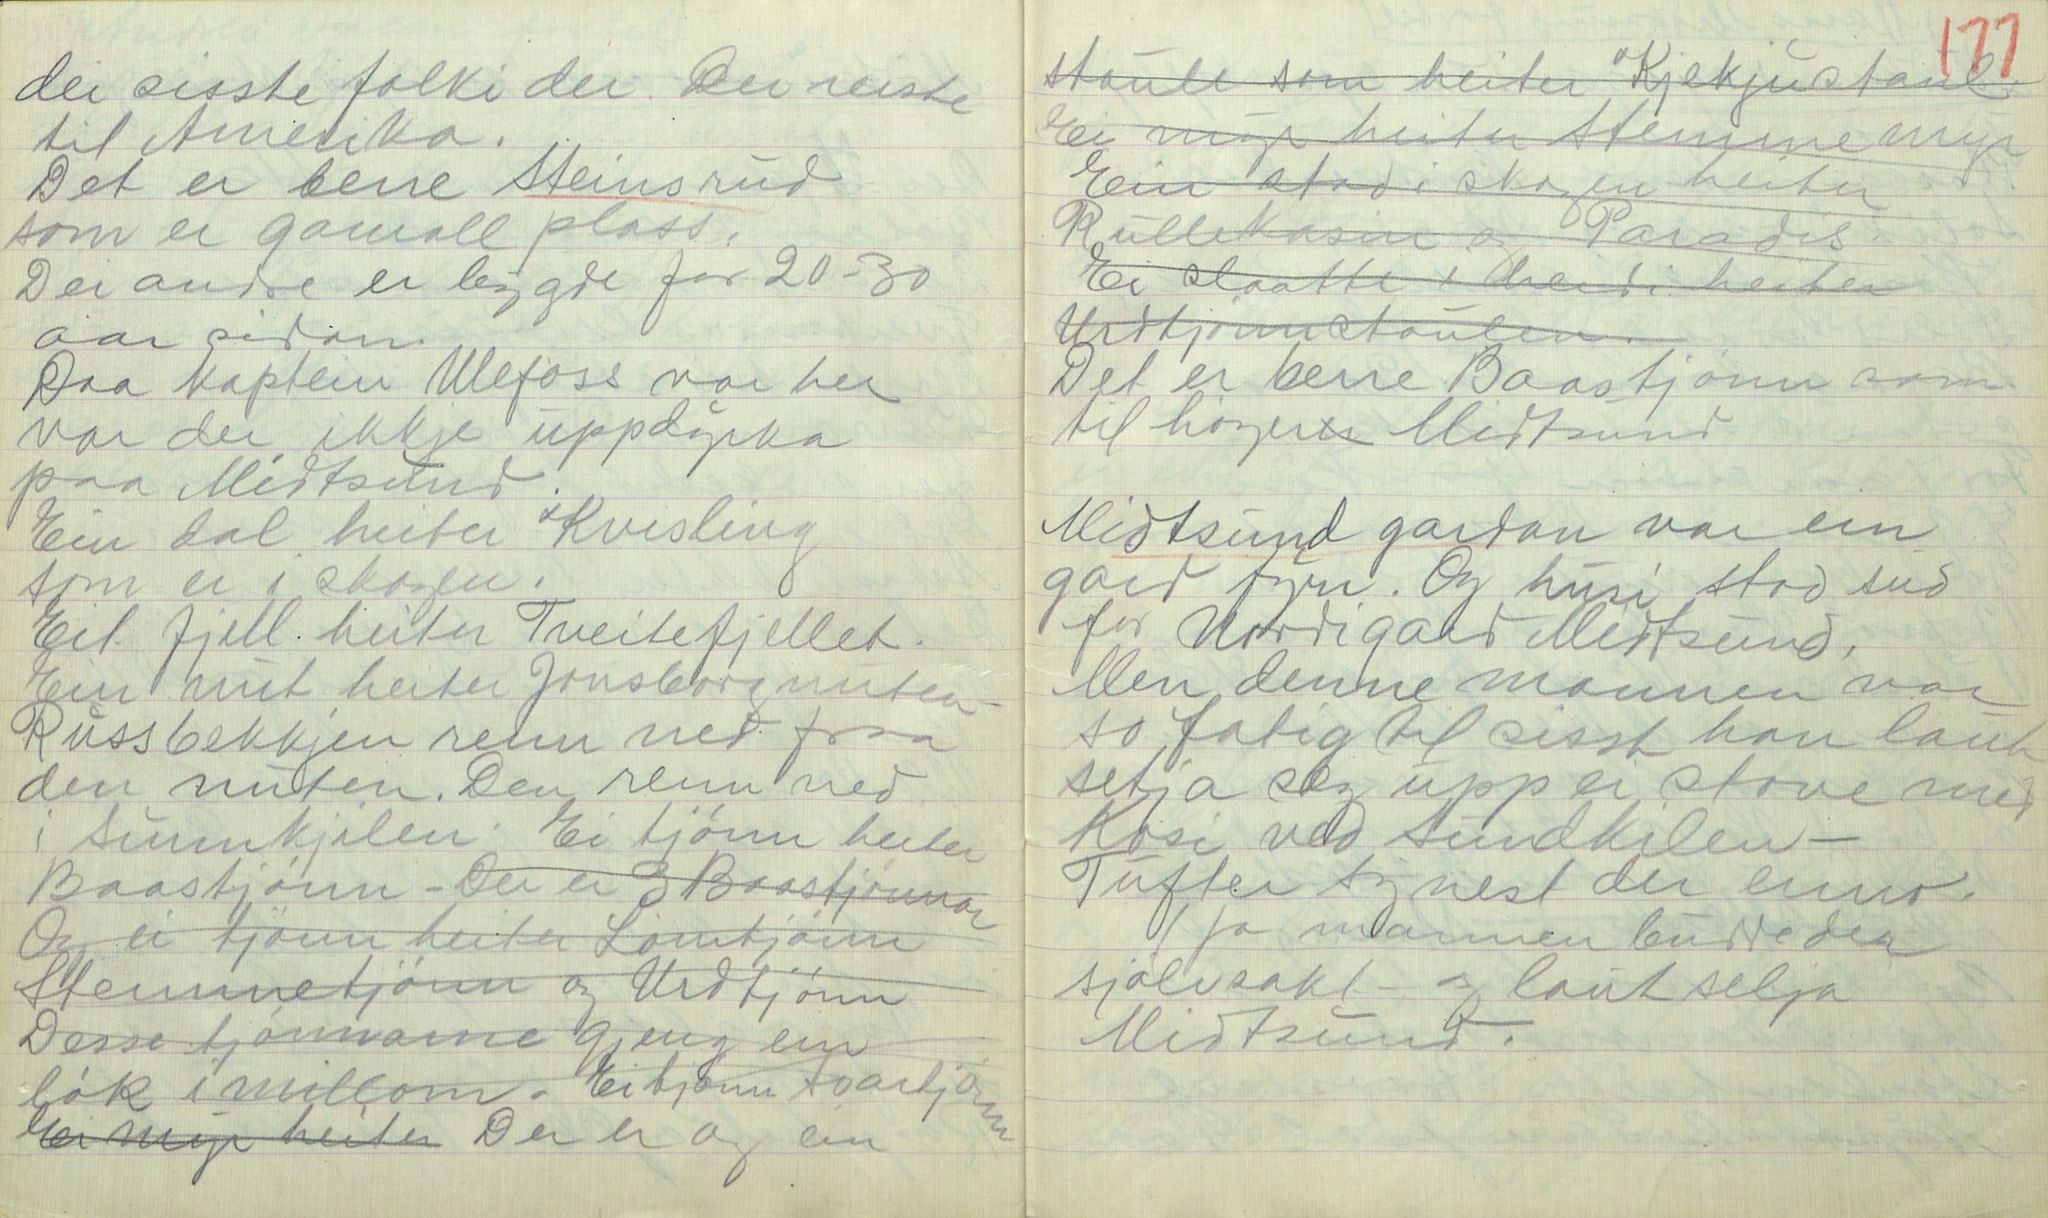 dei sisste folki der. Dei reiste
til Amerika.
Det er berre Steinsrud
som er gamall plass.
Dei andre er bygde for 20-30
aar sidan.
Daa kaptein Ulefoss var her
var der ikkje uppdyrka
paa Midtsund.
Ein dal heiter Kvisling
som er i skogen.
Eit fjell heiter Tveitefjellet.
Ein nut heiter Jonsborgnuten-
Russbekkjen renn ned fraa
den nuten. Den renn ned
i Sunnkjilen. Ei tjönn heiter
Baastjönn - Der er 3 Baastjönnar
Og ei tjönn heiter Lomtjönn
Stemmetjönn og Urdtjönn
Desse tjönnarne gjeng ein
bök imillom. Ei tjönn Svartjönn
Ei myr heiter Der er og ein
177
staule som heiter Kjekjustaul.
Ei myr heiter Stemmemyr
Ein stad i skogen heiter
Rullekasin og Paradis.
Ei slaatte i heidi heiter
Urdtjönnstaulen.
Det er berre Baastjönn som
til höyrer Midtsund
Midtsund gardan var ein
gard fyrr. Og husi stod sud
for Nordigard Midtsund.
Men denne mannen var
so fatig til sisst han laut
setja seg upp ei stove med
Kosi ved Sundkilen -
Tufter synest der enno.
Ja mannen budde der
sjölvsakt - og laut selja
Midtsund.